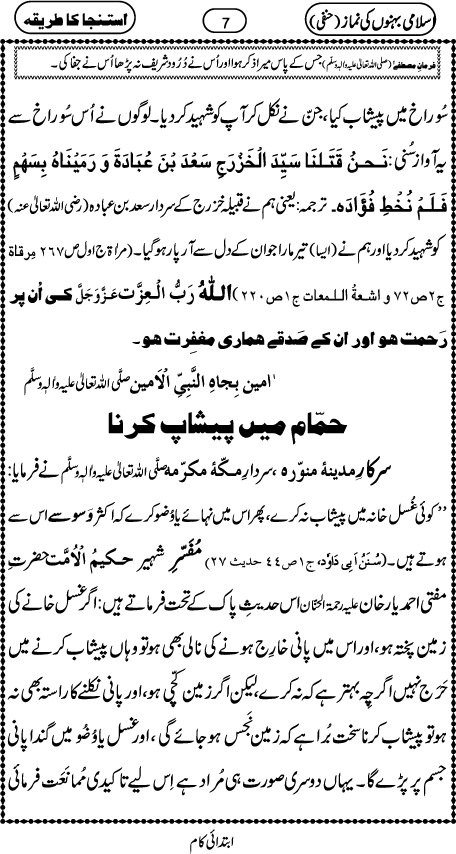 اسلامی بہنوں کی نماز (حنفی)
7
استنجا کا طریقہ
فرمانِ مصطفےٰ (صلی اللہ تعالیٰ علیہ والہٖ وسلم) جس کے پاس میرا ذکر ہوا اور اُس نے دُرُود شریف نہ پڑھا اُس نے جفا کی۔
سُوراخ میں پیشاب کیا، جنّ نے نکل کر آپ کو شہید کر دیا۔ لوگوں نے اُس سُوراخ سے
یہ آواز سُنی: نَحنُ قَتَلنَا سَیِّدَ الْخَزْرَجِ سَعْدَ بْنَ عُبَادَۃَ وَ رَمَیْنَاہُ بِسَھْمٍ
فَلَمْ نُخْطِ فُؤَادَہ۔ ترجمہ: یعنی ہم نے قبیلۂ خزرج کے سردار سعد بن عبادہ (رضی اللہ تعالیٰ عنہ)
کو شہید کر دیا اور ہم نے (ایسا) تیر مارا جو ان کے دل سے آر پار ہو گیا۔ (مراۃ ج اول ص ۲۶۷ مرقاۃ
ج۲ ص۷۲ و اشعۃُ اللمعات ج۱ ص۲۲۰) اللہُ رَبُّ الْعِزَّت عَزَّوَجَلَّ کی اُن پر
رَحمت ہو اور ان کے صَدقے ہماری مغفِرت ہو۔
امین بِجاہِ النَّبِیِّ الْاَمین صلَّی اللہ تعالیٰ علیہ والہٖ وسلَّم
حمّام میں پیشاب کرنا
سرکارِ مدینۂ منوّرہ، سردارِ مکّۂ مکرّمہ صلَّی اللہ تعالیٰ علیہ والہٖ وسلَّم نے فرمایا:
’’کوئی غُسل خانہ میں پیشاب نہ کرے، پھر اس میں نہائے یا وُضو کرے کہ اکثر وَسوسے اس سے
ہوتے ہیں۔ (سُنَنُ اَبِی دَاوٗد، ج۱ ص ۴۴ حدیث ۲۷) مُفَسِّرِ شہیر حکیمُ الْاُمَّت حضرتِ
مفتی احمد یار خان علیہ رحمۃ الحنّان اس حدیثِ پاک کے تحت فرماتے ہیں: اگر غسل خانے کی
زمین پختہ ہو، اور اس میں پانی خارِج ہونے کی نالی بھی ہو تو وہاں پیشاب کرنے میں
حَرَج نہیں اگرچہ بہتر ہے کہ نہ کرے، لیکن اگر زمین کچّی ہو، اور پانی نکلنے کا راستہ بھی نہ
ہو تو پیشاب کرنا سخت بُرا ہے کہ زمین نَجِس ہو جائے گی، اور غسل یا وُضُو میں گندا پانی
جسم پر پڑے گا۔ یہاں دوسری صورت ہی مُراد ہے اِس لیے تاکیدی مُمانَعَت فرمائی
ابتدائی کام